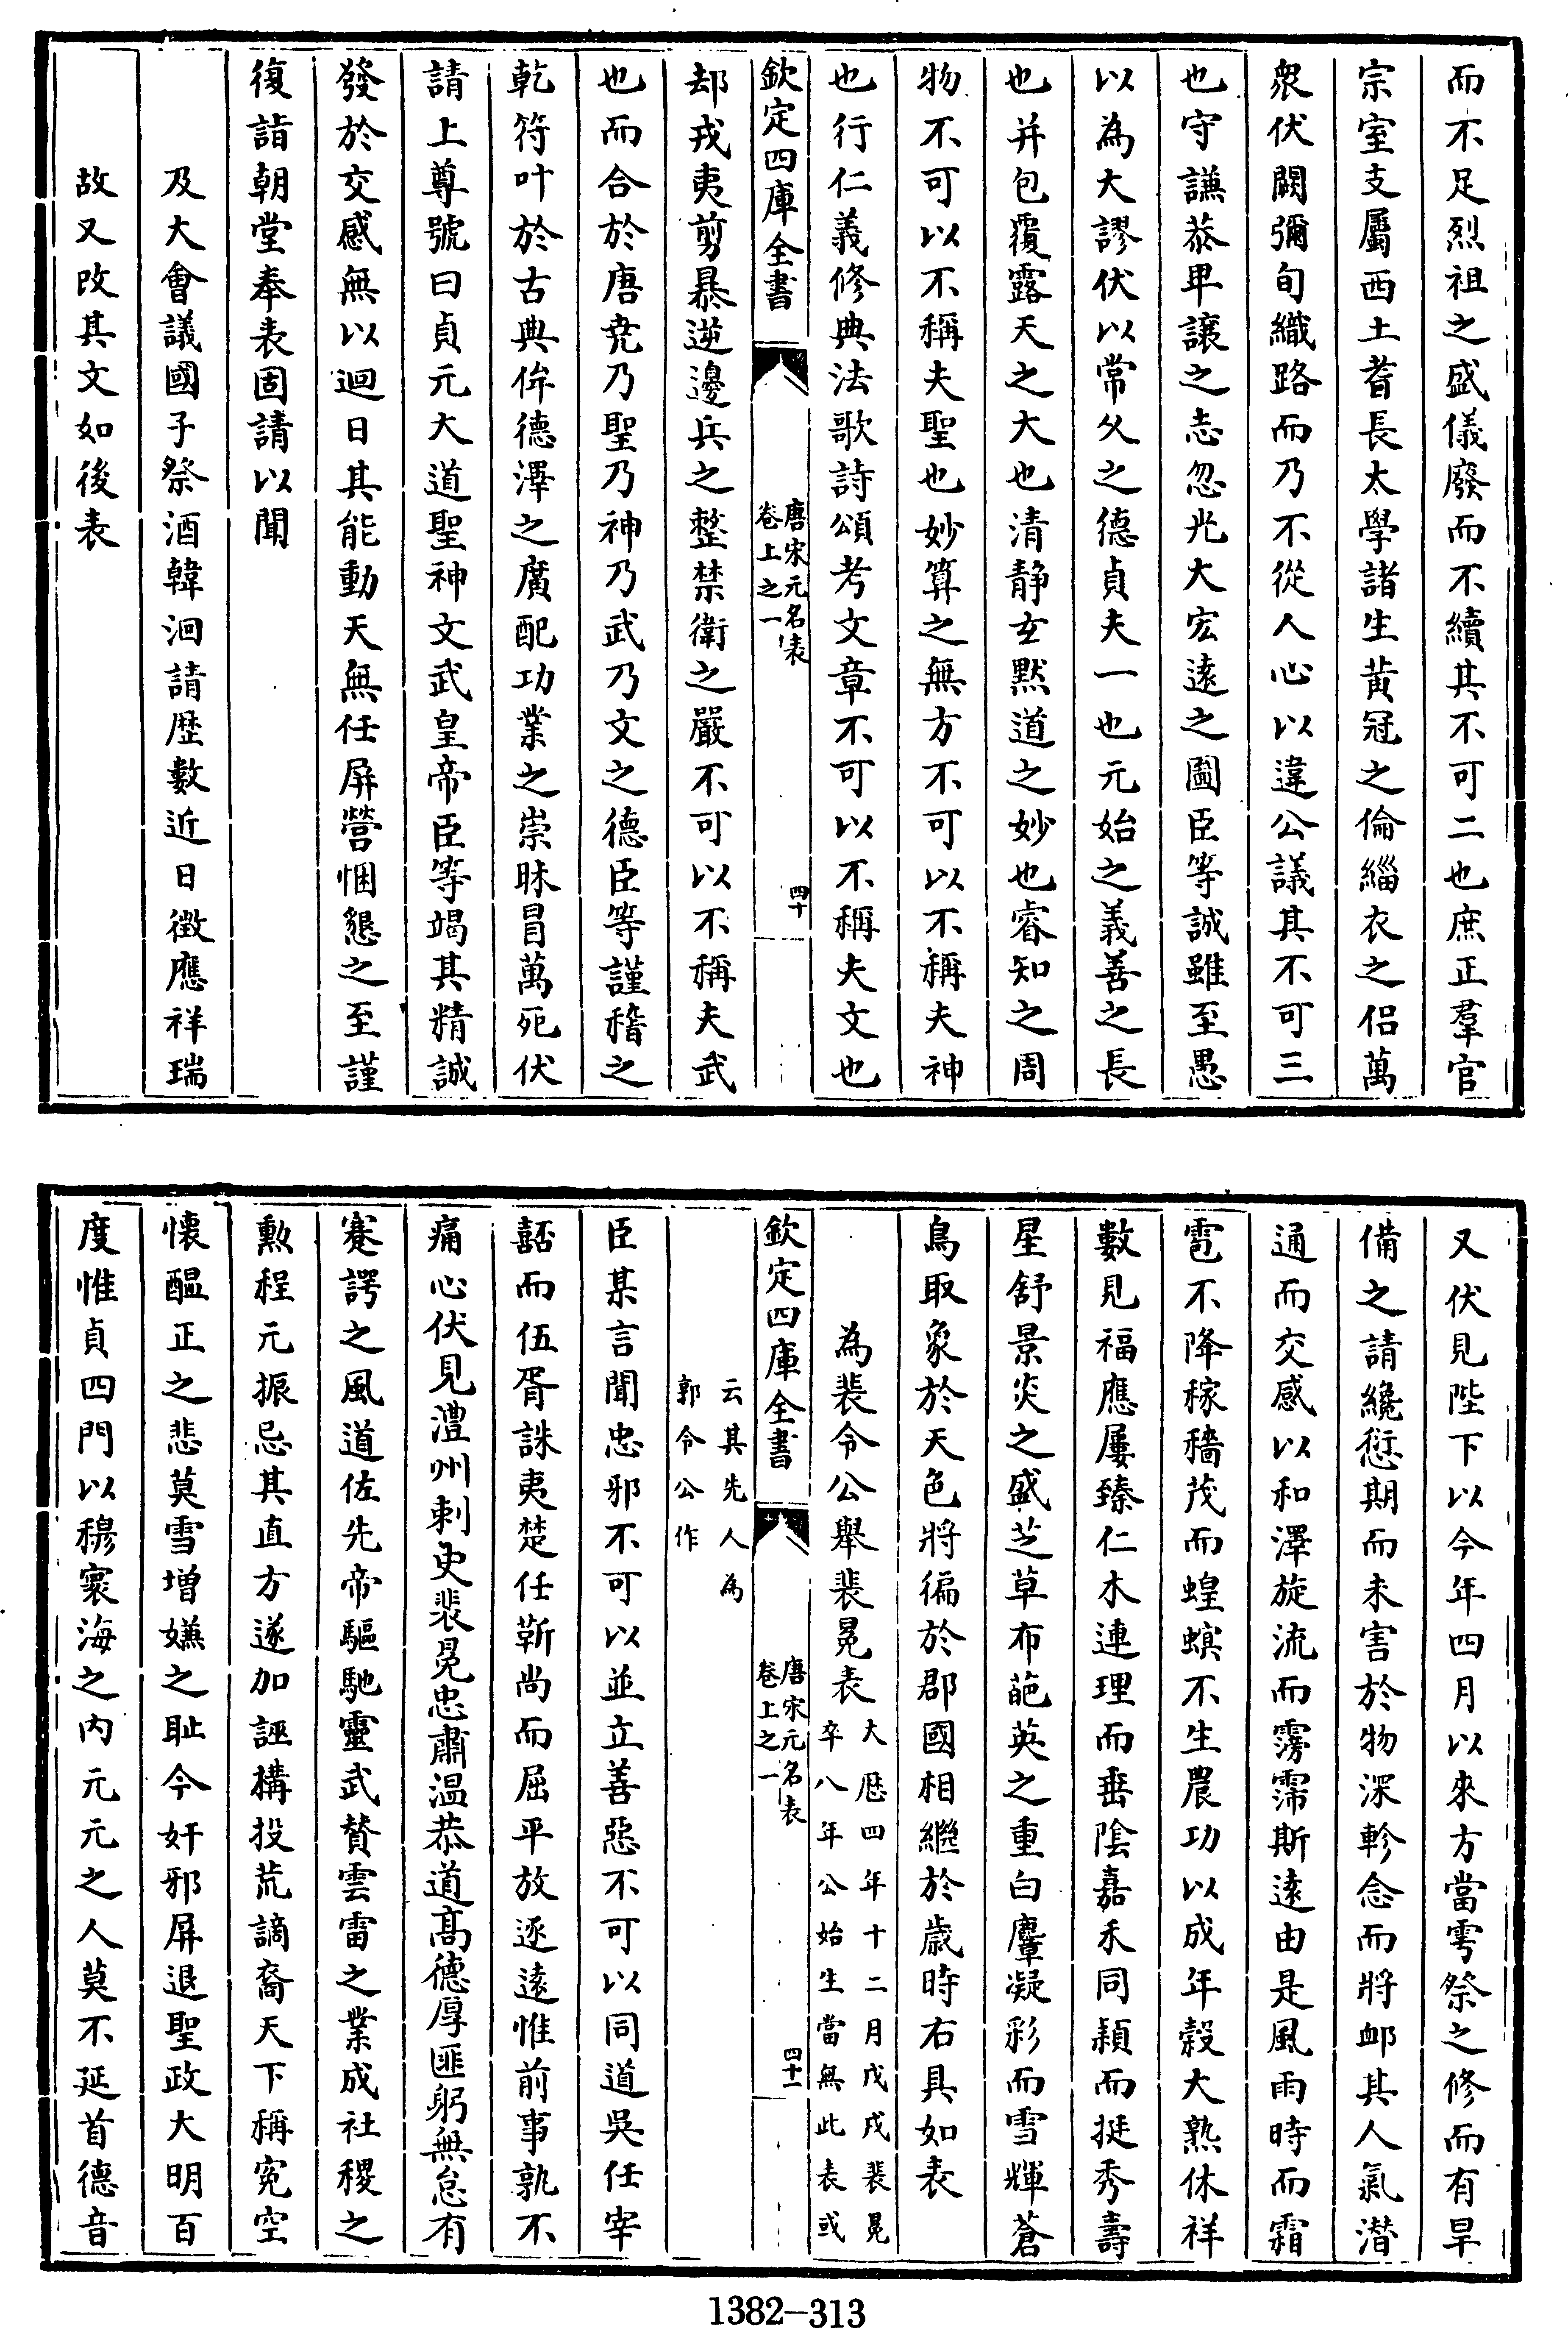 而不足烈祖之盛儀廢而不續其不可二也庶正羣官
宗室支屬西土耆長太學諸生黄冠之倫緇衣之侣萬
衆伏闕彌旬織路而乃不從人心以違公議其不可三
也守謙恭卑譲之志忽光大宏逺之圖臣等誠雖至愚
以為大謬伏以常久之德貞夫一也元始之義善之長
也并包覆露天之大也清静玄默道之妙也睿知之周
物不可以不稱夫聖也妙算之無方不可以不稱夫神
也行仁義修典法歌詩頌考文章不可以不稱夫文也
欽定四庫全書
唐宋元名表
卷上之一
四十
却戎夷剪暴逆邊兵之整禁衛之嚴不可以不稱夫武
也而合於唐尭乃聖乃神乃武乃文之德臣等謹稽之
乾符叶於古典侔德澤之廣配功業之崇昧冒萬死伏
請上尊號曰貞元大道聖神文武皇帝臣等竭其精誠
發於交感無以迴日其能動天無任屏營悃懇之至謹
復詣朝堂奉表固請以聞
及大會議國子祭酒韓洄請歴數近日徴應祥瑞
故又改其文如後表
又伏見陛下以今年四月以來方當雩祭之修而有旱
備之請纔愆期而未害於物深軫念而將卹其人氣潛
通而交感以和澤旋流而霶霈斯逺由是風雨時而霜
雹不降稼穡茂而蝗螟不生農功以成年榖大熟休祥
數見福應屢臻仁木連理而垂陰嘉禾同穎而挺秀壽
星舒景炎之盛芝草布葩英之重白麞凝彩而雪輝蒼
鳥取象於天色將徧於郡國相繼於歳時右具如表
為裴令公舉裴冕表大厯四年十二月戊戌裴冕
卒八年公始生當無此表或
欽定四庫全書
唐宋元名表
卷上之一
四十一
云其先人為
郭令公作
臣某言聞忠邪不可以並立善惡不可以同道吳任宰
嚭而伍胥誅夷楚任靳尚而屈平放逐逺惟前事孰不
痛心伏見澧州刺史裴冕忠肅温恭道髙德厚匪躬無怠有
蹇諤之風道佐先帝驅馳靈武賛雲雷之業成社稷之
勲程元振忌其直方遂加誣構投荒謫裔天下稱寃空
懷醖正之悲莫雪增嫌之耻今奸邪屏退聖政大明百
度惟貞四門以穆寰海之内元元之人莫不延首德音
1382-313